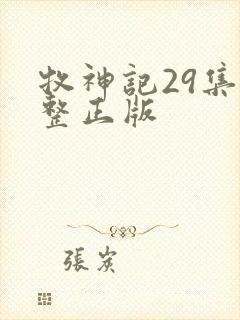 牧神記29集
整正版
張岚